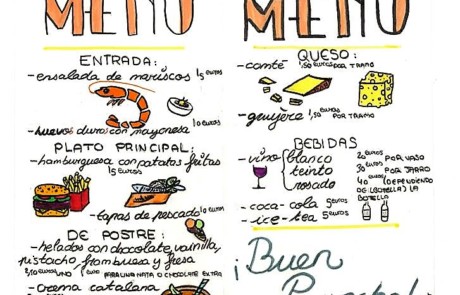 MENÚ
ENTRADA:
-ensalada de mariscos 15 euros
-huevos duros con mayonesa 10 euros
PLATO PRINCIPAL:
-hamburguesa con patatas fritas
15 euros
-tapas de pescado 10 euros
DE POSTRE:
-helados con chocolate, vainilla,
pistacho, frambuesa y fresa
UNO 1 euro PARA UNA NATA O CHOCOLATE EXTRA
-crema catalana
MENÚ
QUESO:
-comté 1,50 euros POR TRAMO
-gruyère 1,50 euros POR TRAMO
BEBIDAS
-vino blanco 20 euros POR VASO
tinto 30 euros POR JARRO
rosado 40 (DEPENDIENDO
DE LA BOTELLA) LA
BOTELLA
-coca-cola 5 euros
-ice-tea 5 euros
¡Buen